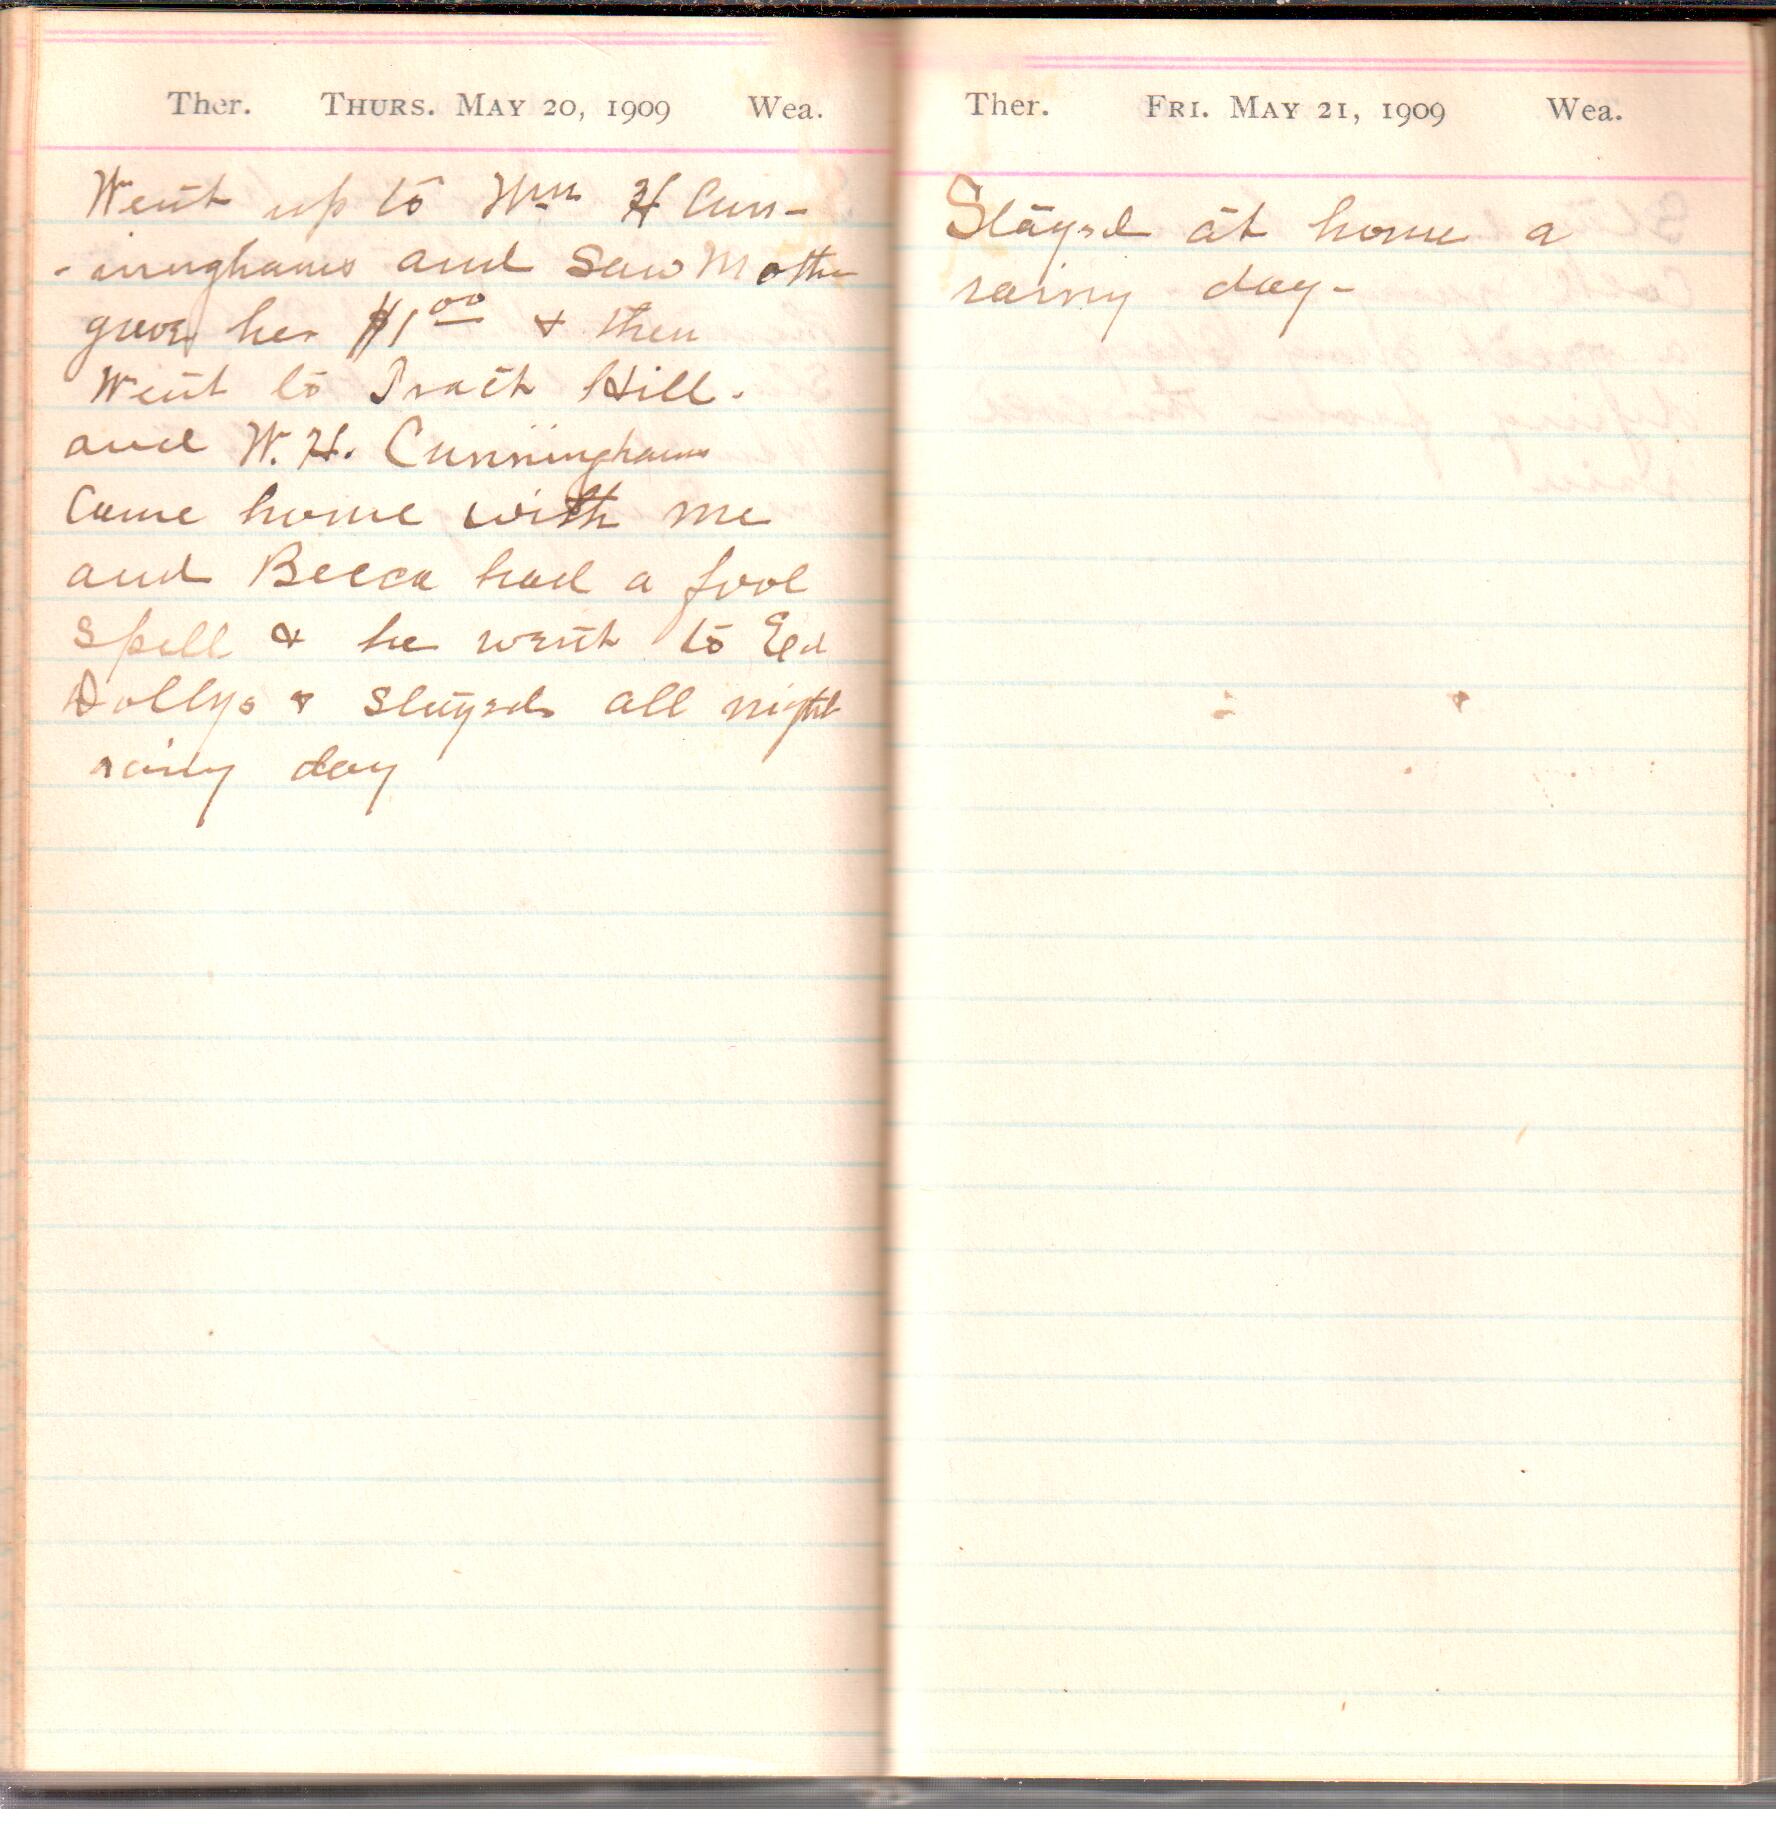 Ther. THURS. MAY 20, 1909 Wea.
Went up to Wm H Cun-
-ninghams and Saw Mother
gave her $1 00 & then
Went to Hill.
and W. H. Cunningham
Came home with me
and Becca had a fool
Spell & he went to Ed
Dollys & stayed all night
rainy day
Ther. FRI. MAY 21, 1909 Wea.
Stayed at home a
rainy day-